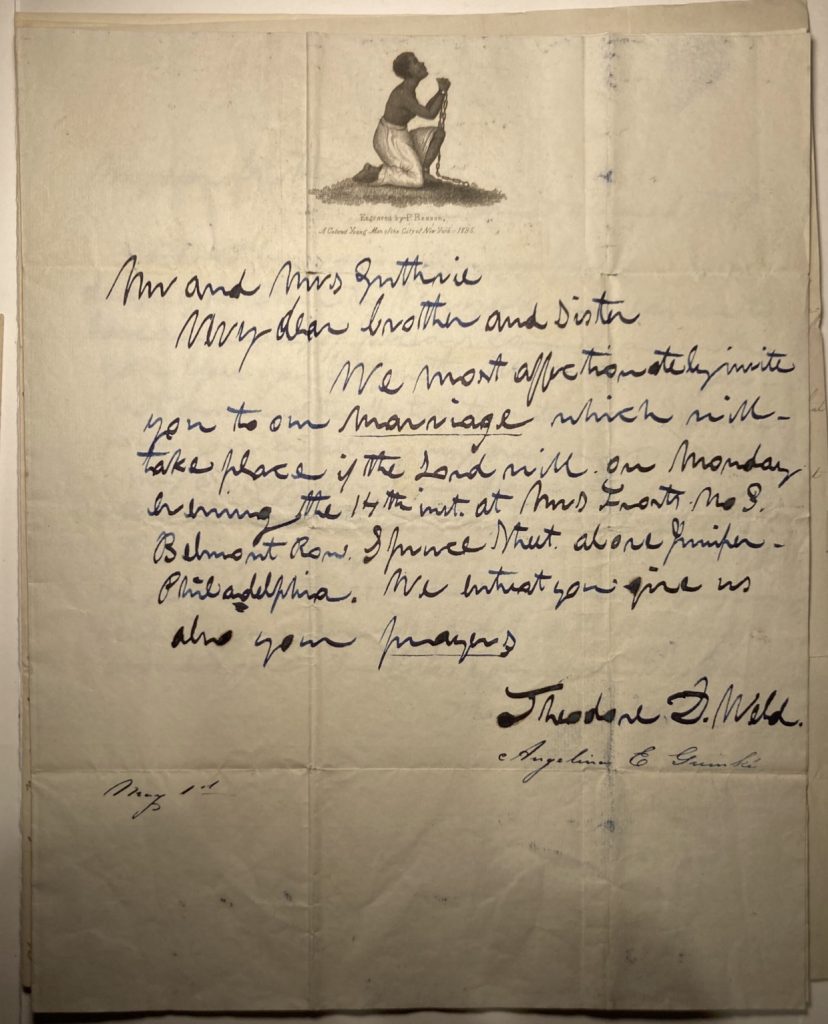 Engraved by P. Reason,
A Colored Young Man of the City of New York 1835
Mr and Mrs Guthrie
Very dear brother and Sister
We most affectionately invite
you to our marriage which will
take place if the Lord will on Monday
evening the 14th inst. at Mrs Frosts No 3.
Belmont Row. Spruce Street. above Juniper
Philadelphia. We entreat you give us
also your prayers
Theodore D. Weld.
Angelina E Grimké
May 1st